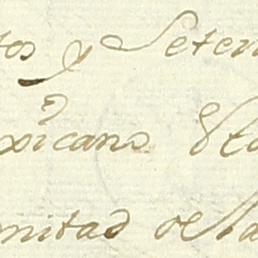 tos y Seten
xicano Sta
mitad de la